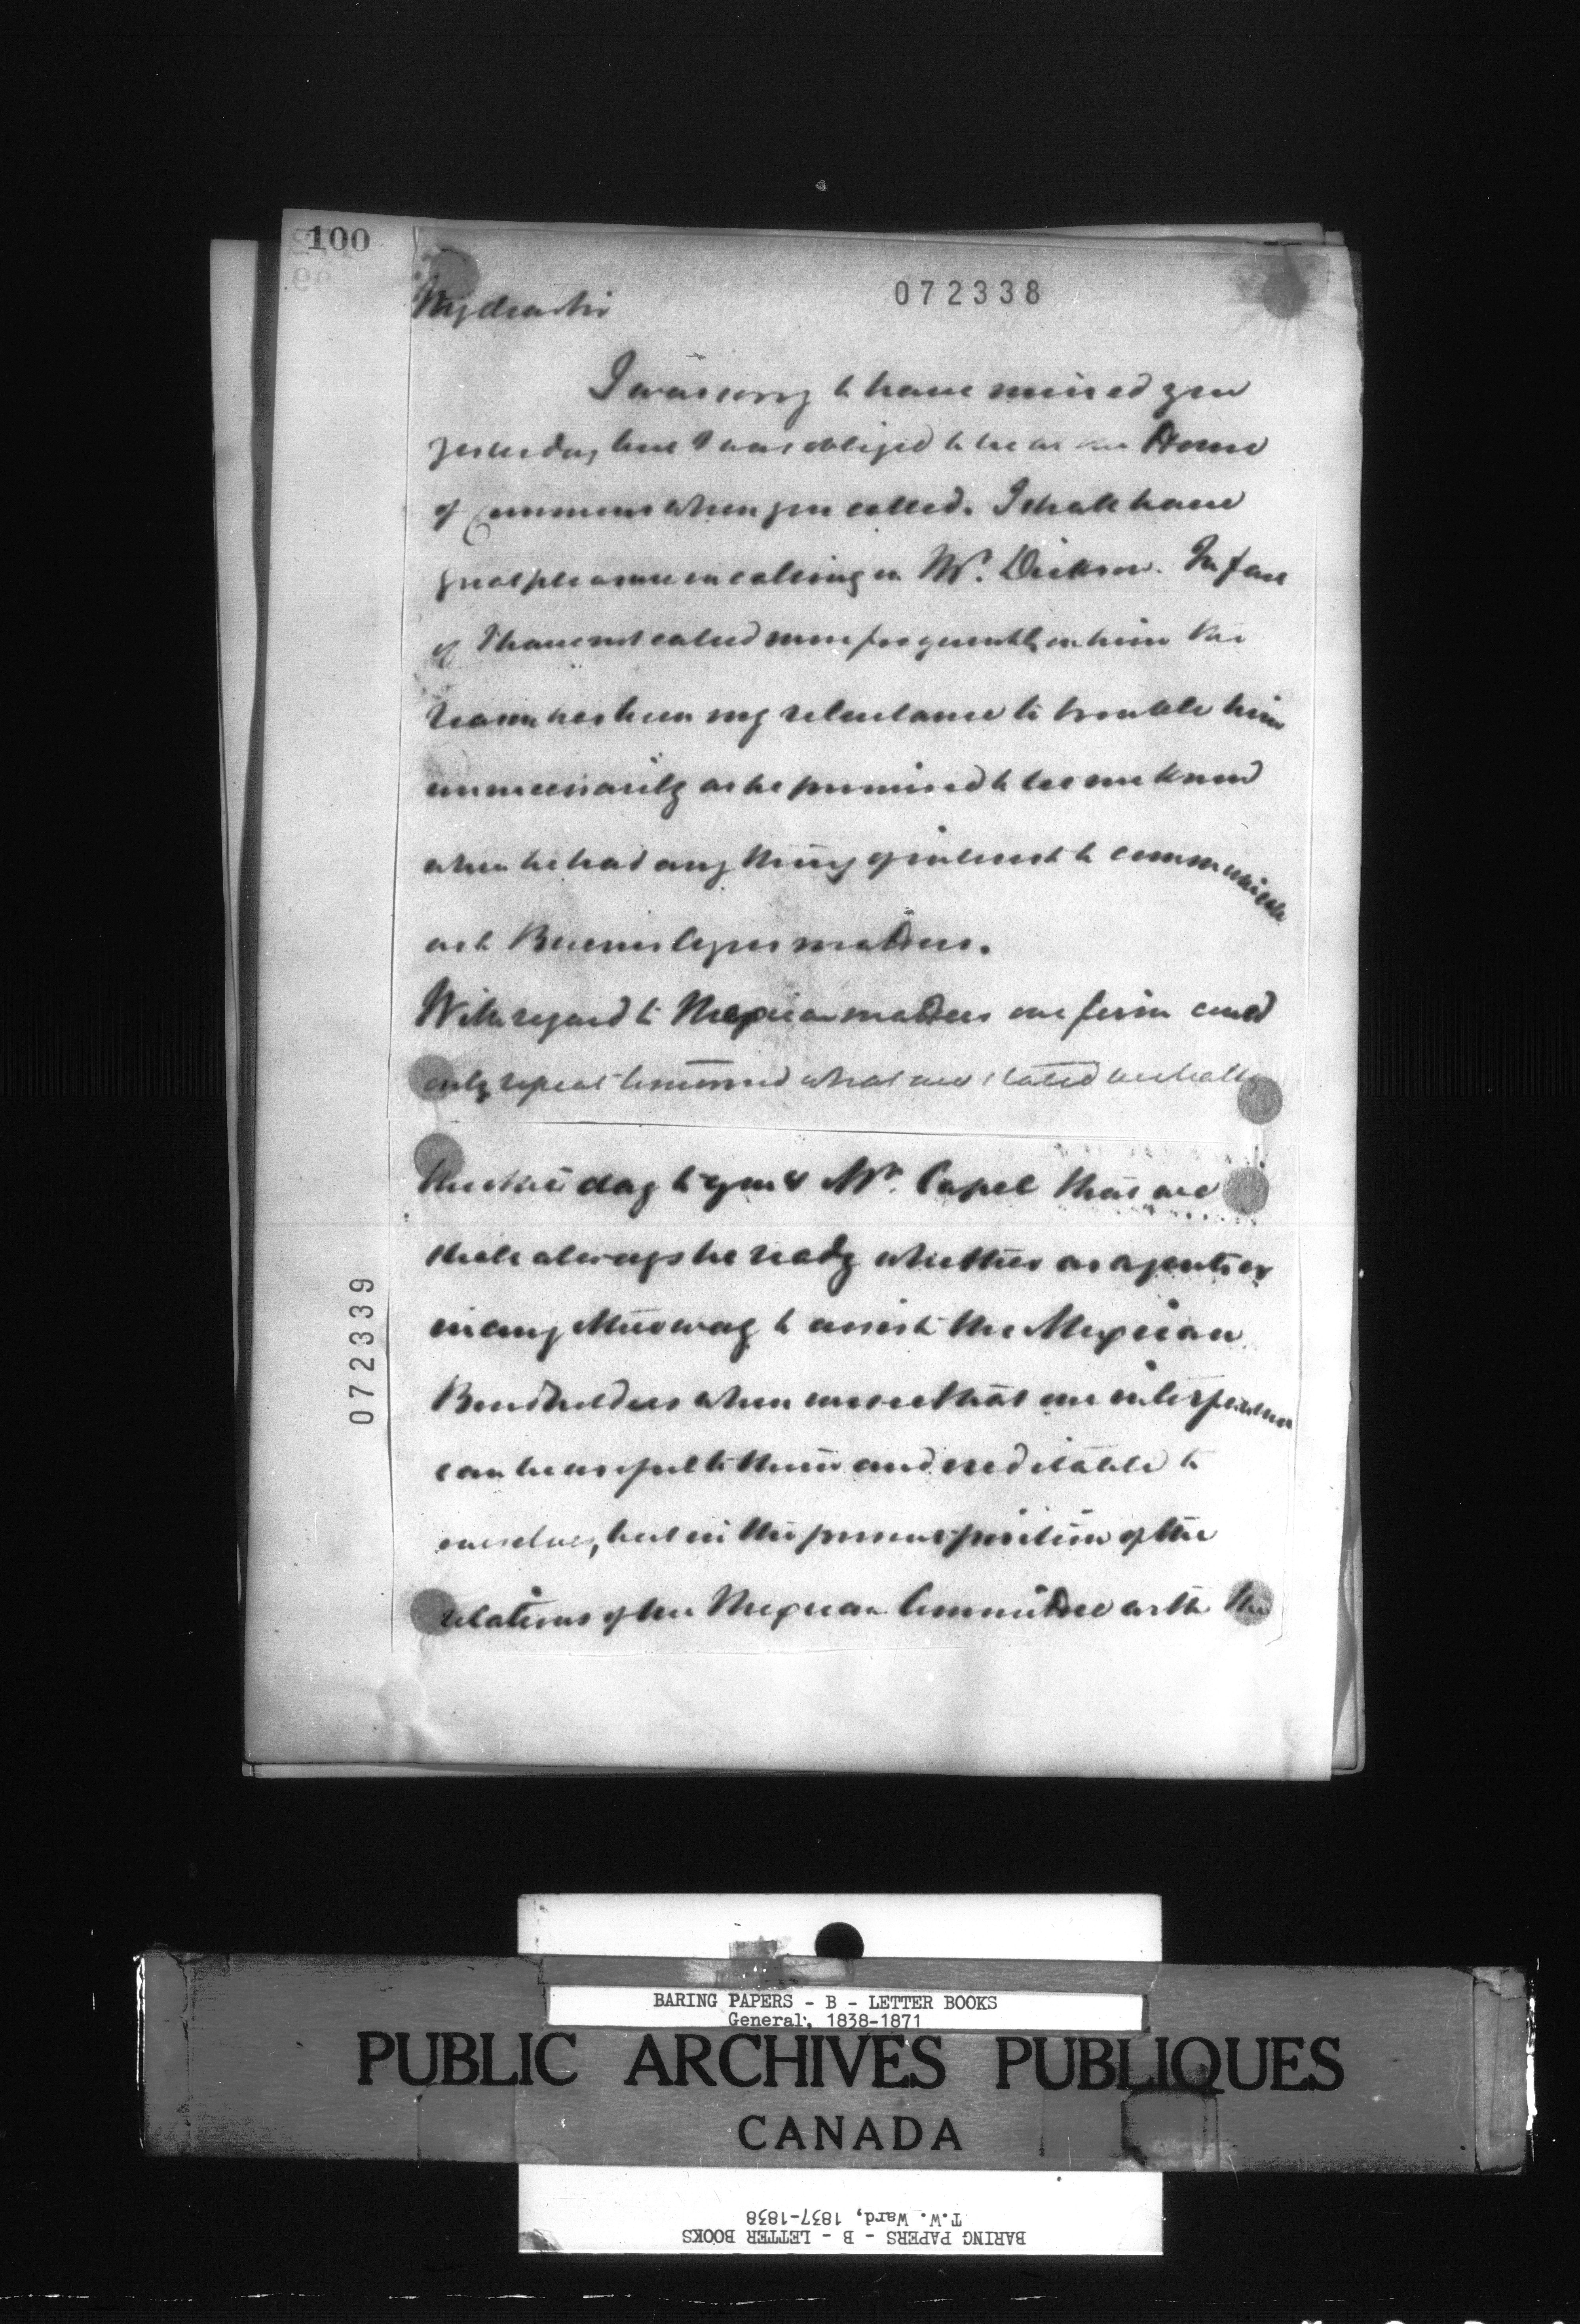 100
072338
My dear Sir
I was sorry to have missed you
yesterday but I was obliged to be at the House
of Commons when you called. I shall have
great pleasure in calling on Mr. Dickson. In fact
if I have not called more frequently on him the
reason has been my reluctance to trouble him
unnecessarily as he promised to let me know
when he had any thing of interest to communicate
as to Buenos Ayres matters.
With regard to Mexican matters our firm could
only repeat what we stated verbally
the other day to you & Mr. Capel that we
shall always be ready whether as agents or
in any other way to assist the Mexican
Bondholders when we see that our interference
can be useful to them and creditable to
ourselves, but in the present position of the
relations of the Mexican Committee with the
072339
BARING PAPERS - B - LETTER BOOKS
General, 1838-1871
PUBLIC ARCHIVES PUBLIQUES
CANADA
BARING PAPERS - B - LETTER BOOKS
T.W. Ward, 1837-1838